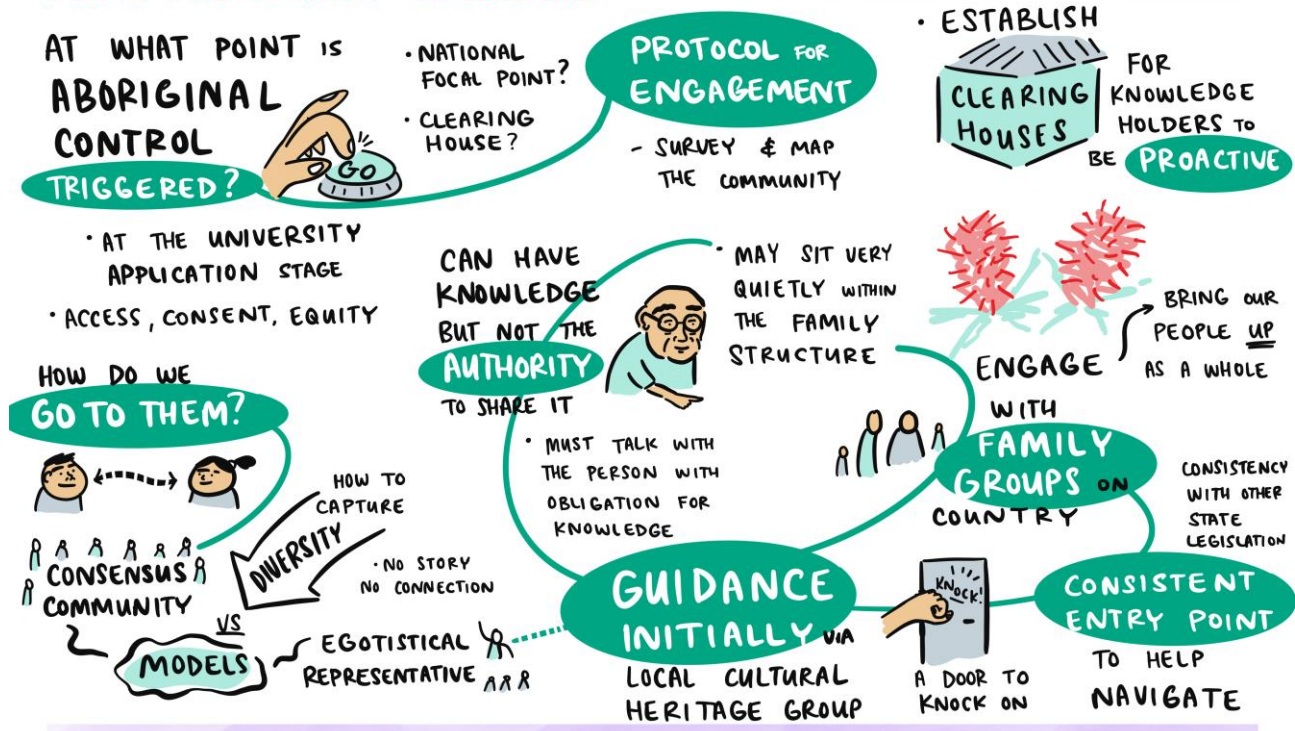 AT WHAT POINT IS
ABORIGINAL
CONTROL
TRIGGERED?
GO
· NATIONAL
FOCAL POINT?
· CLEARING
HOUSE?
PROTOCOL FOR
ENGAGEMENT
- SURVEY & MAP
THE COMMUNITY
· ESTABLISH
CLEARING
HOUSES
FOR
KNOWLEDGE
HOLDERS TO
BE PROACTIVE
· AT THE UNIVERSITY
APPLICATION STAGE
· ACCESS, CONSENT, EQUITY
CAN HAVE
KNOWLEDGE
BUT NOT THE
AUTHORITY
TO SHARE IT
· MAY SIT VERY
QUIETLY WITHIN
THE FAMILY
STRUCTURE
· MUST TALK WITH
THE PERSON WITH
OBLIGATION FOR
KNOWLEDGE
ENGAGE
WITH
FAMILY
GROUPS ON
COUNTRY
BRING OUR
PEOPLE UP
AS A WHOLE
HOW DO WE
GO TO THEM?
HOW TO
CAPTURE
DIVERSITY
CONSENSUS
COMMUNITY
VS
MODELS
· NO STORY
NO CONNECTION
EGOTISTICAL
REPRESENTATIVE
GUIDANCE
INITIALLY VIA
LOCAL CULTURAL
HERITAGE GROUP
KNOCK!
A DOOR TO
KNOCK ON
CONSISTENCY
WITH OTHER
STATE
LEGISLATION
CONSISTENT
ENTRY POINT
TO HELP
NAVIGATE